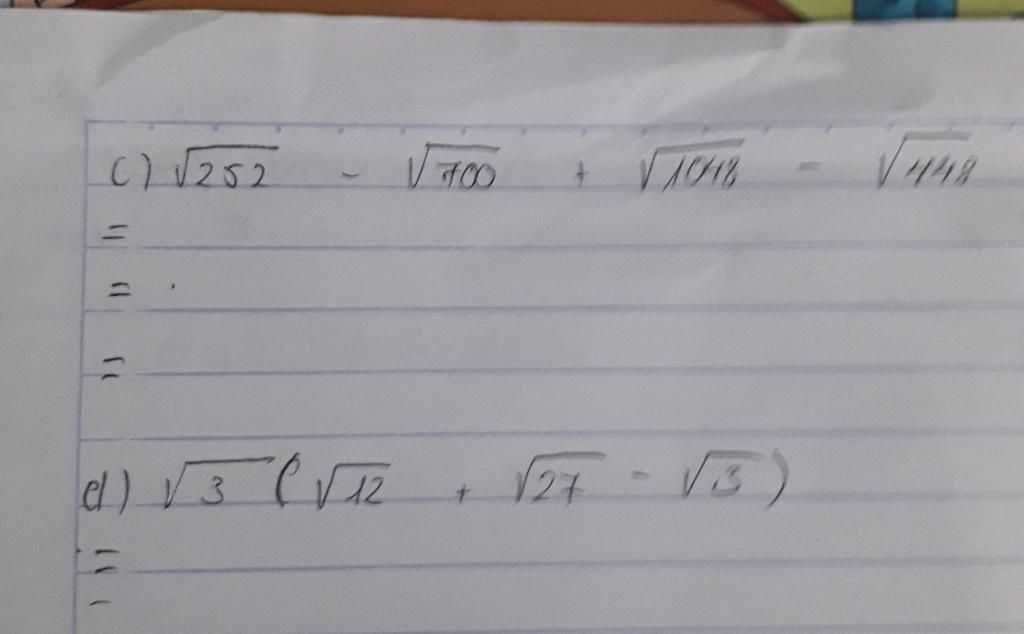 c) √252 - √700 + √1048 - √448
=
= .
=
d) √3 (√12 + √27 - √3)
=
-